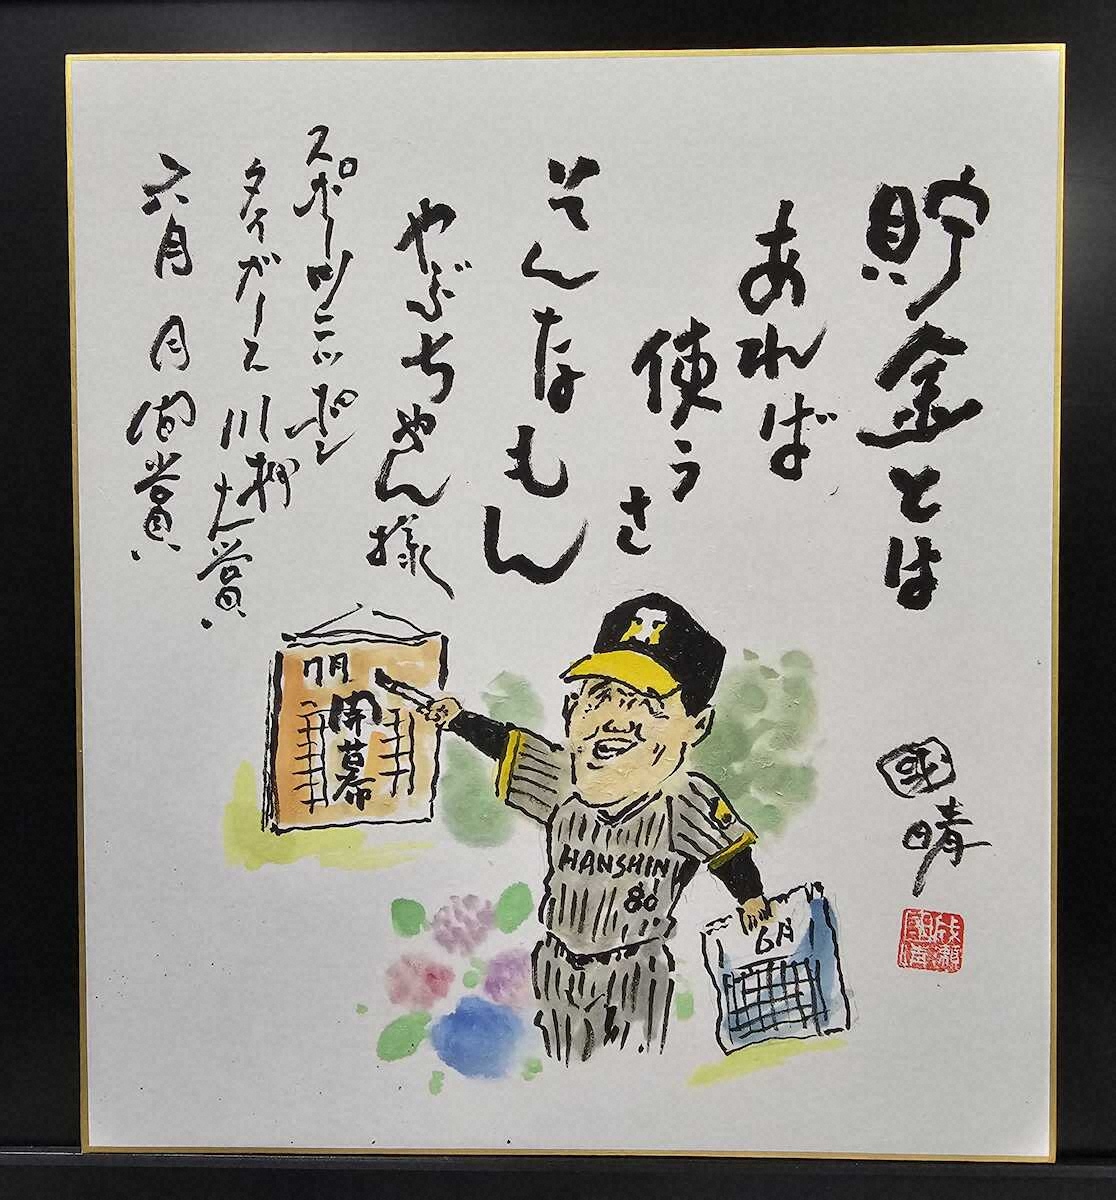 貯金とは
あれば
使うさ
そんなもん
やぶちゃん様
スポーツニッポン
タイガース川柳大賞
六月 月間賞
國晴
成瀬
國晴
7月
開幕
HANSHIN
86
6月